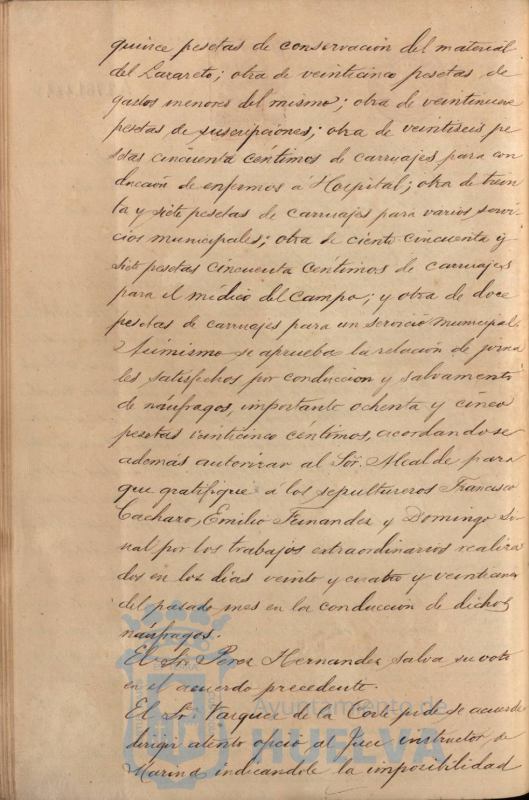 quince pesetas de conservación del material
del Lazareto; otra de veinticinco pesetas de
gastos menores del mismo; otra de veintinueve
pesetas de suscripciones; otra de veintiseis pe
setas cincuenta céntimos de carruajes para con
ducción de enfermos á Hospital; otra de trein
ta y siete pesetas de carruajes para varios servi
cios municipales; otra de ciento cincuenta y
siete pesetas cincuenta céntimos de carruajes
para el médico del campo; y otra de doce
pesetas de carruajes para un servicio municipal.
Asimismo se aprueba la relación de jorna
les satisfechos por conducción y salvamento
de náufragos, importante ochenta y cinco
pesetas veinticinco céntimos, acordandose
además autorizar al Sor. Alcalde para
que gratifique á los sepultureros Francisco
Cacharo, Emilio Fernandez y Domingo
por los trabajos extraordinarios realiza
dos en los días veinte y cuatro y veinticinco
del pasado mes en la conducción de dichos
náufragos.
El Sr. Perez Hernandez salva su voto
en el acuerdo precedente.
El Sr. Vazquez de la Corte pide se acuerde
dirigir atento oficio al Juez instructor de
Marina indicandole la imposibilidad
Ayuntamiento de
HUELVA